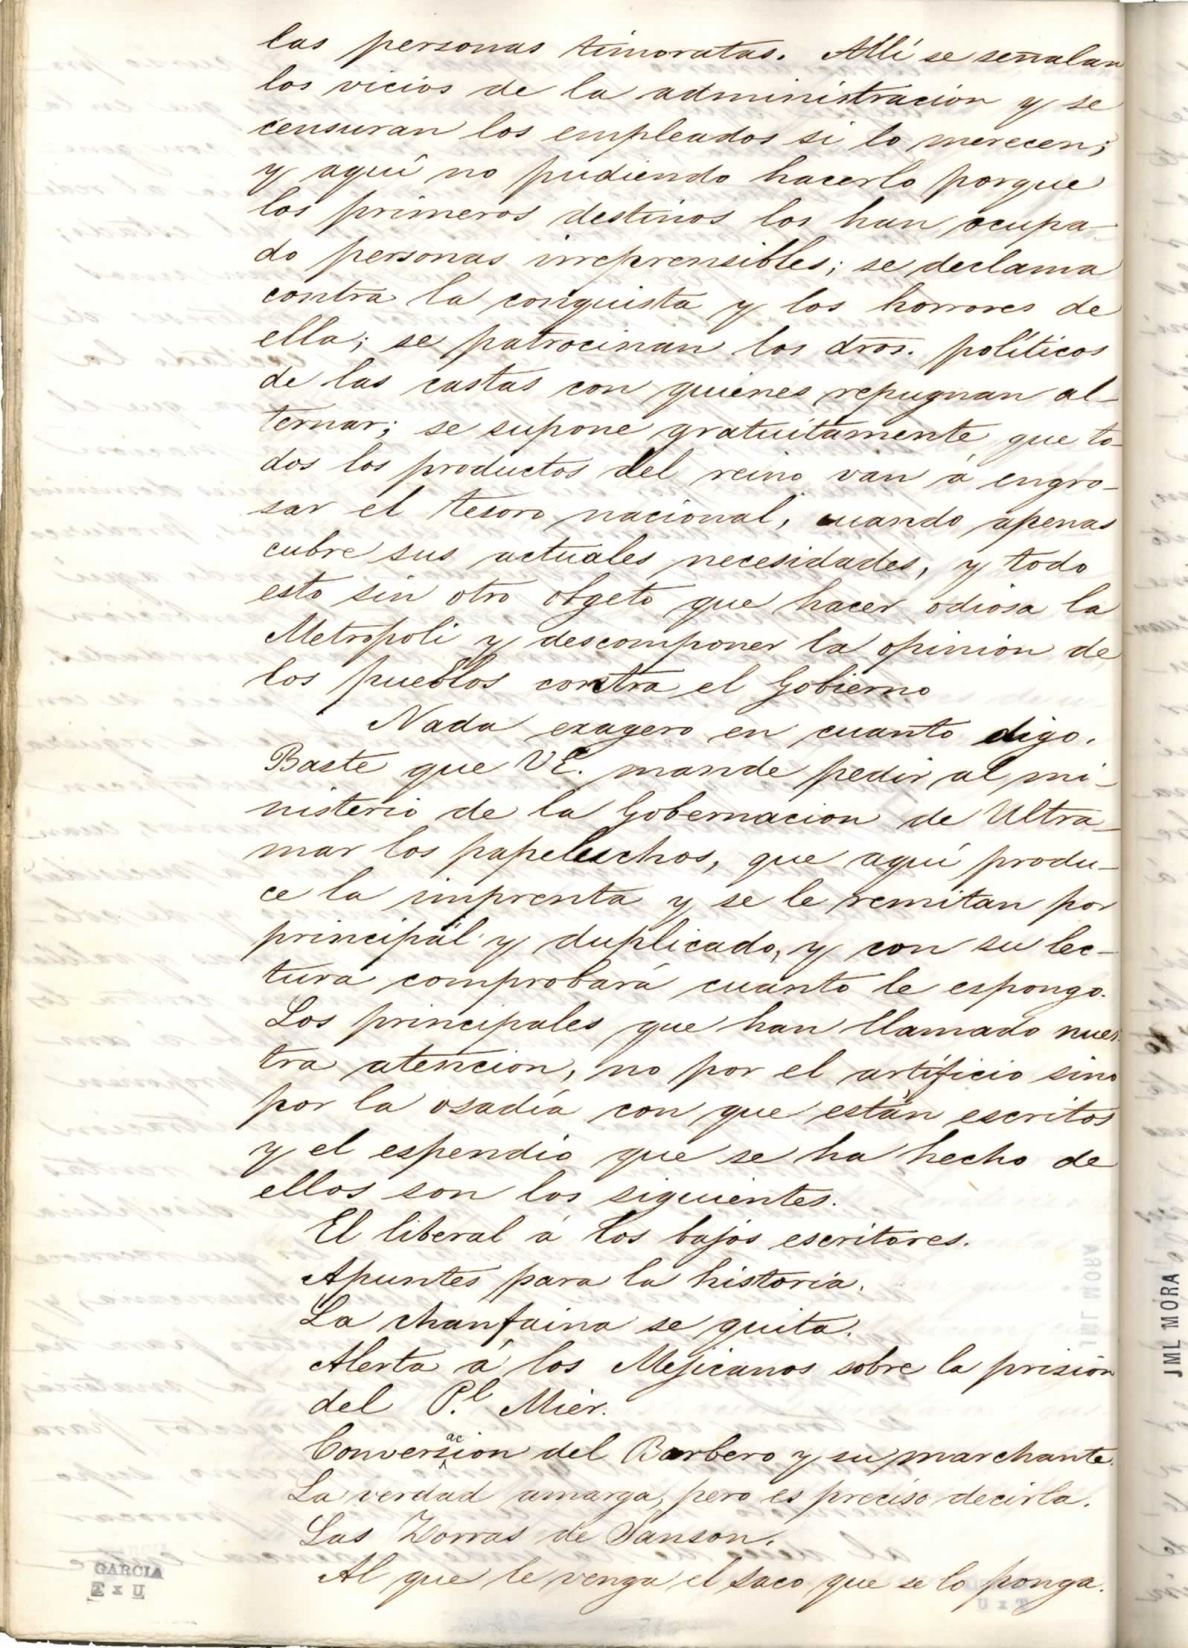 las personas timoratas. Allí se señalan
los vicios de la administracion y se
censuran los empleados si lo merecen;
y aquí no pudiendo hacerlo porque
los primeros destinos los han ocupa-
do personas irreprensibles; se declama
contra la conquista y los horrores de
ella; se patrocinan los dros. políticos
de las castas con quienes repugnan al-
ternar; se supone gratuitamente que to-
dos los productos del reino van á engro-
sar el tesoro nacional, cuando apenas
cubre sus actuales necesidades, y todo
esto sin otro obgeto que hacer odiosa la
Metropoli y descomponer la opinion de
los pueblos contra el Gobierno
Nada exagero en cuanto digo.
Baste que VE. mande pedir al mi-
nisterio de la Gobernacion de Ultra-
mar los papeluchos, que aquí produ-
ce la imprenta y se le remitan por
principal y duplicado, y con su lec-
tura comprobará cuanto le espongo.
Los principales que han llamado nues
tra atencion, no por el artificio sino
por la osadía con que están escritos
y el espendio que se ha hecho de
ellos son los siguientes.
El liberal á los bajos escritores.
Apuntes para la historia.
La chanfaina se quita.
Alerta á los Mejicanos sobre la prision
del P.l Mier.
Conversacion del Barbero y su marchante.
La verdad amarga, pero es preciso decirla.
Las Zorras de Sanson.
Al que le venga el saco que se lo ponga.
GARCIA
E x U
JML MORA